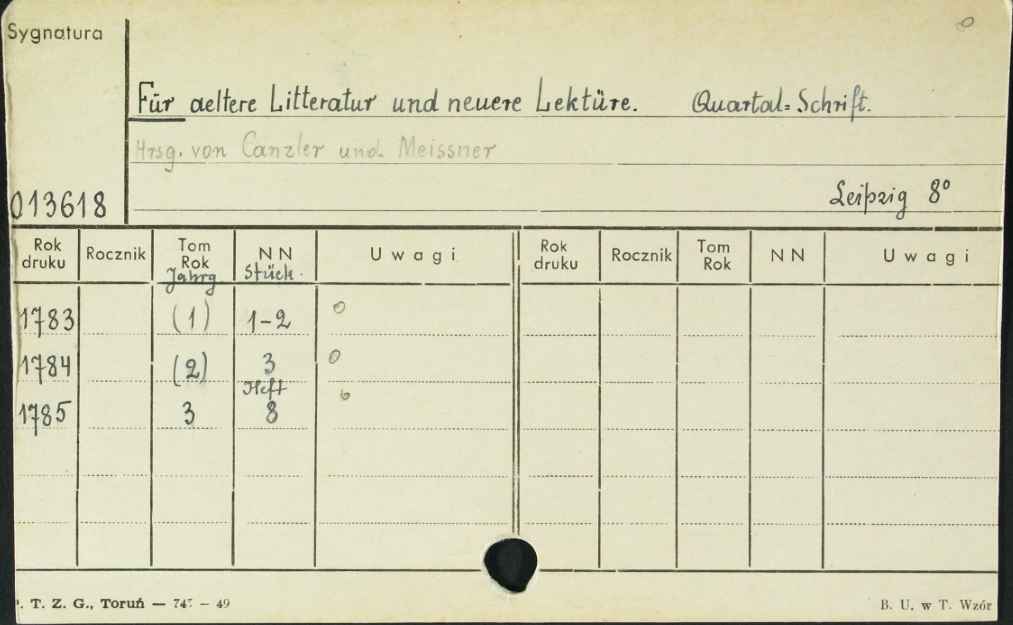 Sygnatura
Für aeltere Litteratur und neuere Lektüre. Quartal=Schrift.
Hrsg. von Canzler und Meissner
013618
Leipzig 8°
Rok druku Rocznik Tom Rok Jahrg NN Stück. Uwagi Rok druku Rocznik Tom Rok NN Uwagi
1783 (1) 1-2 0
1784 (2) 3 0
Heft
1785 3 8
T. Z. G., Toruń — 74 – 49 B. U. w T. Wzór